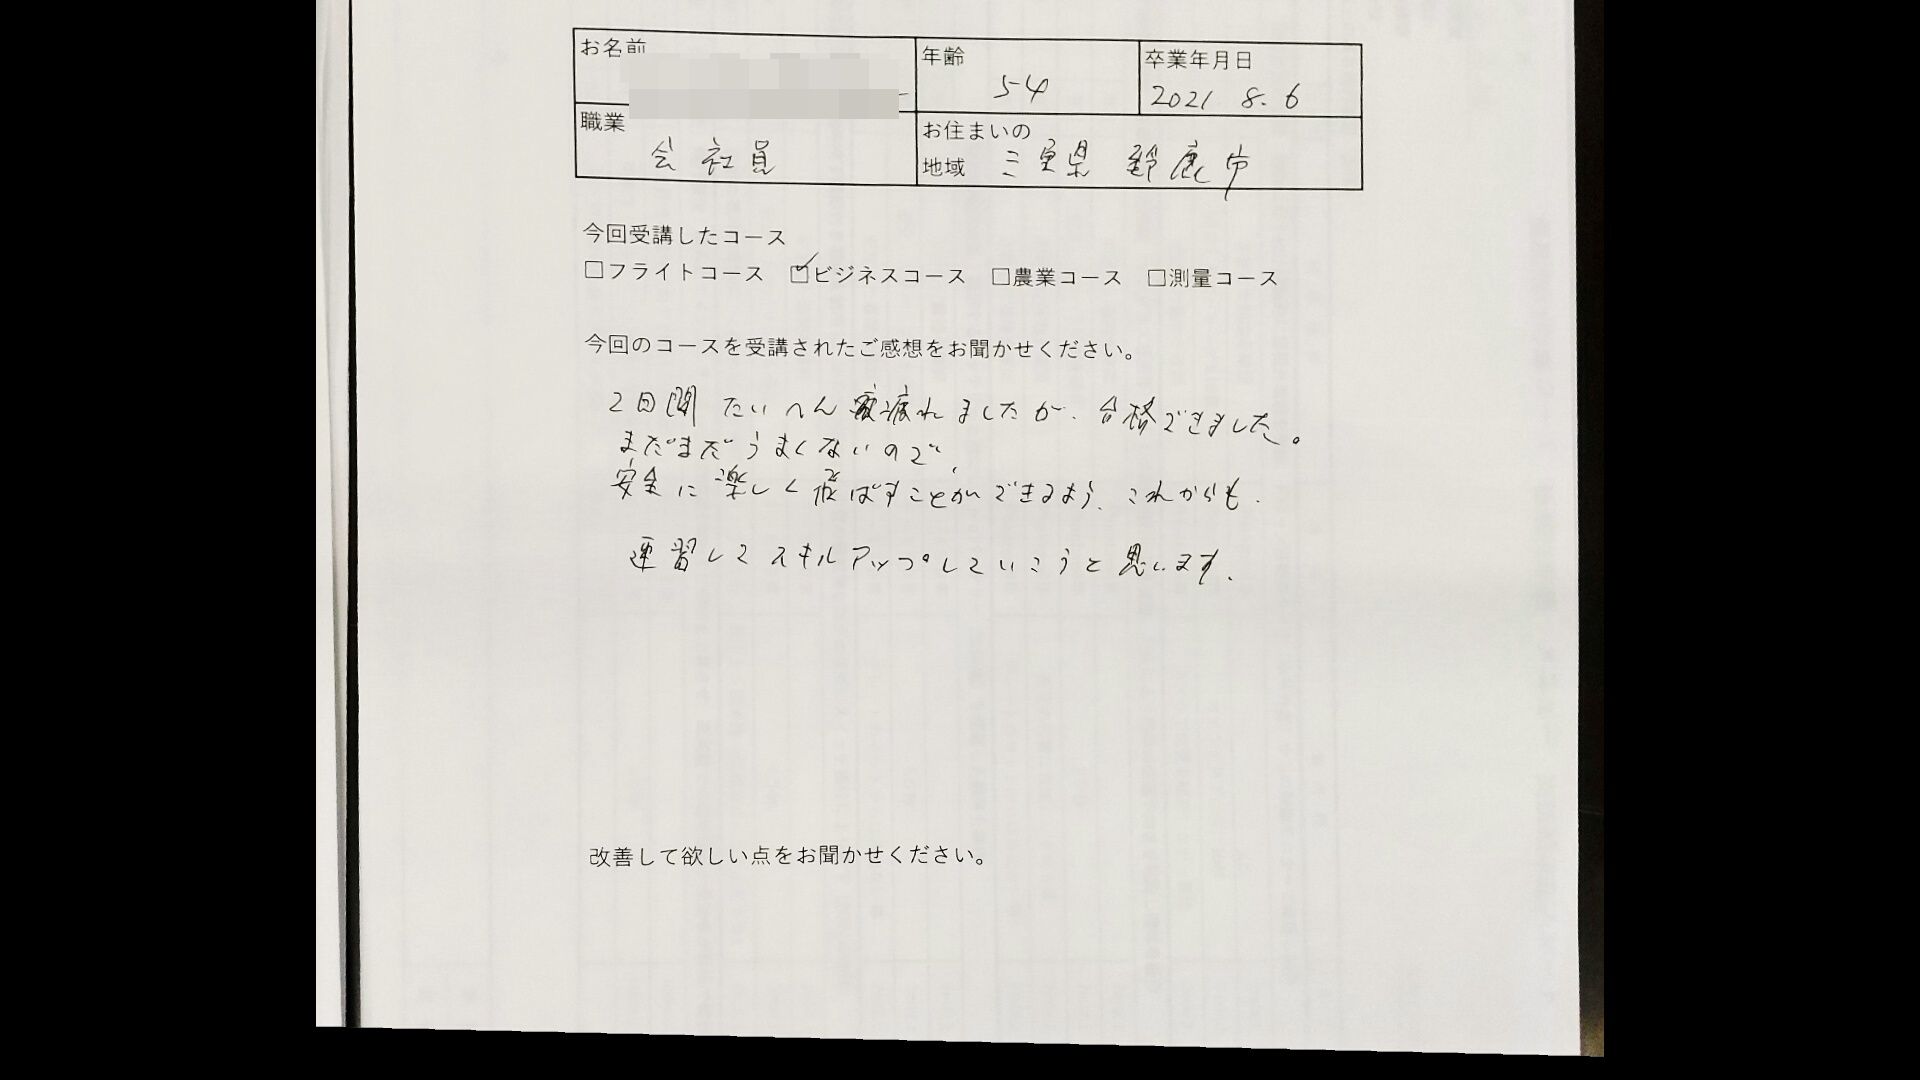 お名前
年齢
54
卒業年月日
2021 8.6
職業
会社員
お住まいの
地域 三重県 鈴鹿市
今回受講したコース
□フライトコース ☑ビジネスコース □農業コース □測量コース
今回のコースを受講されたご感想をお聞かせください。
2日間 たいへん疲れましたが、合格できました。
まだまだうまくないので、
安全に楽しく飛ばすことができるよう、これからも、
練習してスキルアップしていこうと思います。
改善して欲しい点をお聞かせください。